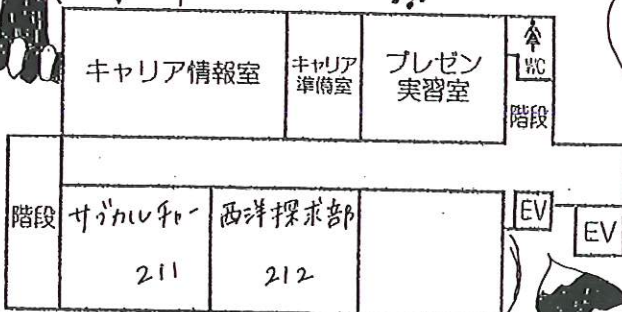 キャリア情報室
キャリア
準備室
プレゼン
実習室
WC
階段
階段
サブカルチャー
211
西洋探求部
212
EV
EV